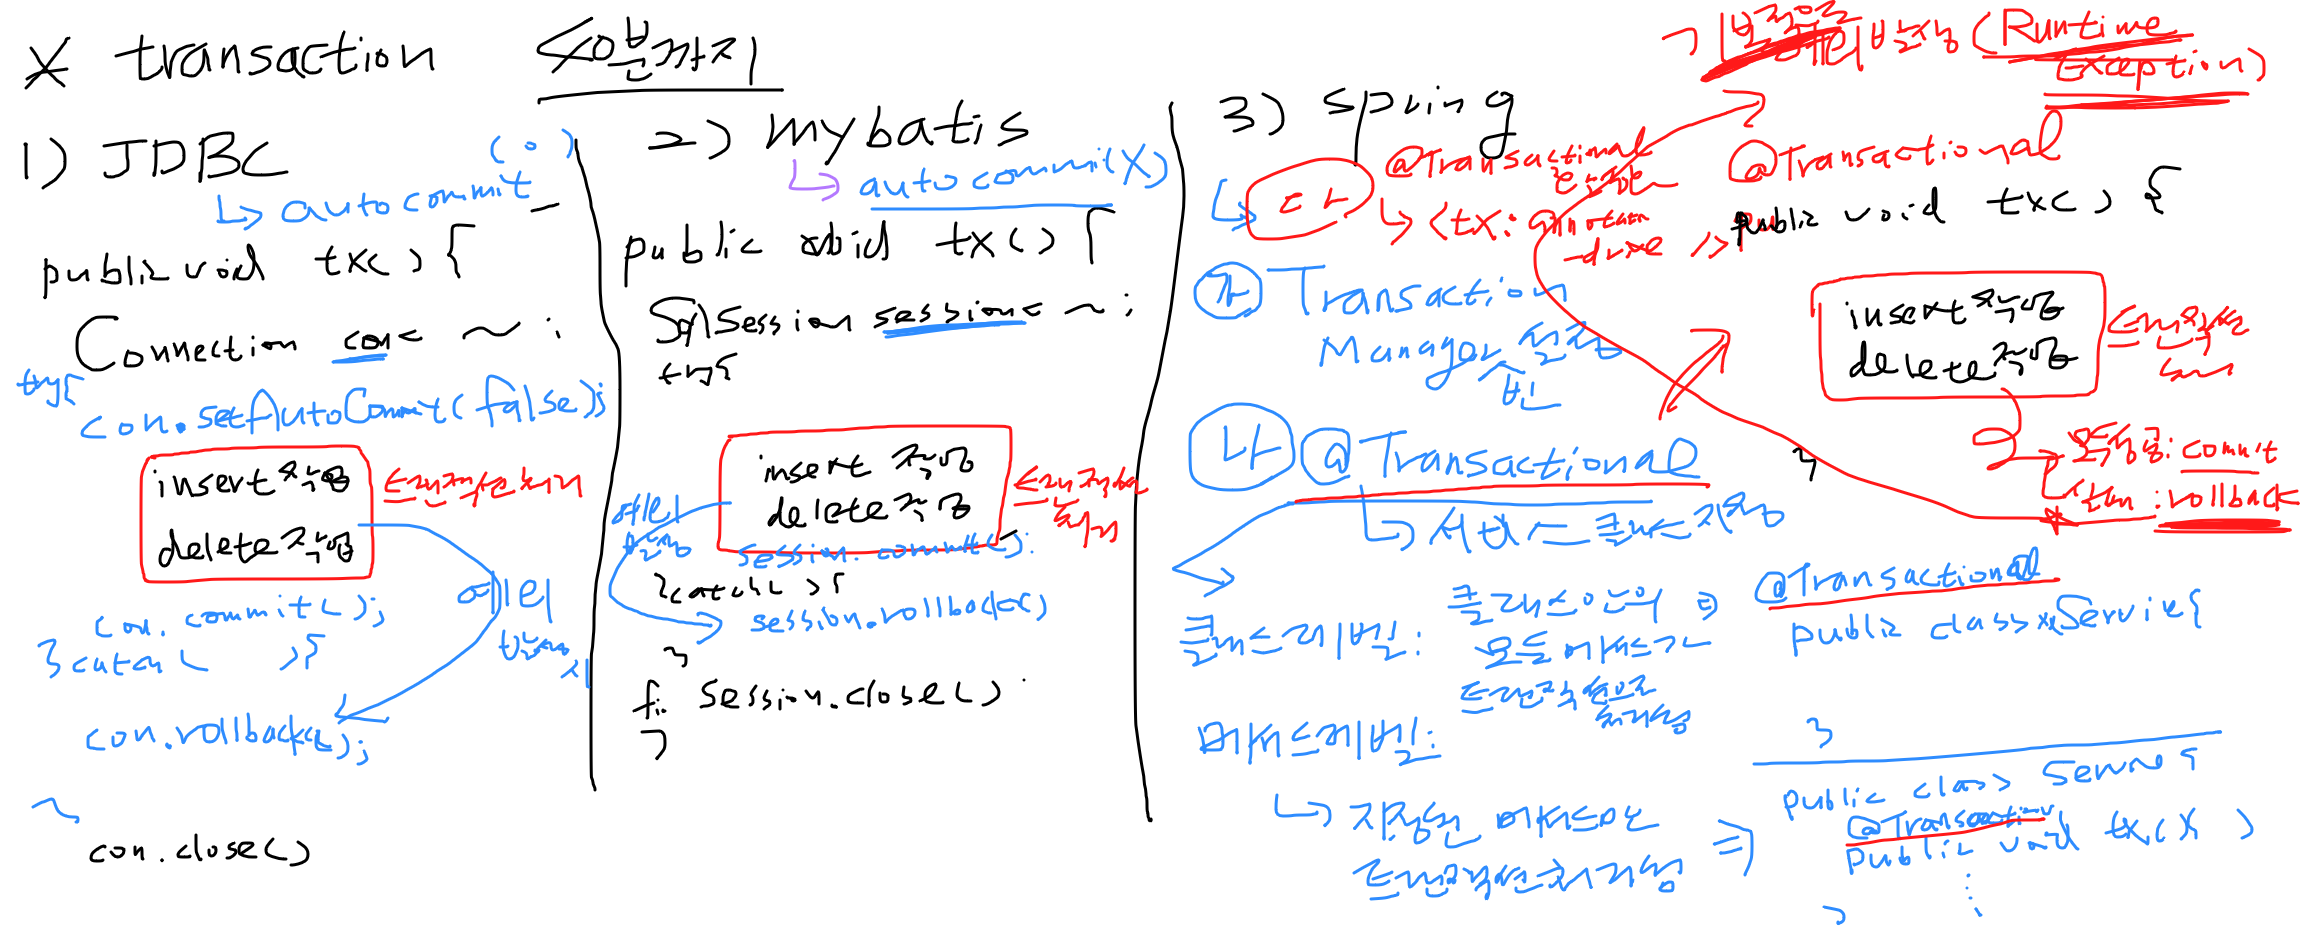 * transaction
<o분까지
1) JDBC
(o)
↳ auto commit
public void tx() {
Connection con= ~ ;
try{
con.setAutoCommit(false);
insert작업
delete작업
트랜잭션처리
con.commit();
}catch( ){
에러
발생시
con.rollback();
}
con.close()
2) mybatis
↳ auto commit(X)
public void tx() {
SqlSession session= ~ ;
try{
insert 작업
delete작업
트랜잭션
처리
에러
발생
session.commit();
}catch( ){
session.rollback()
}
fi session.close()
}
3) spring
↳ 다
@Transactional
↳ <tx:annotation
-drive />
가 Transaction
Manager 설정
빈
나 @Transactional
↳ 서비스 클래스 지정
클래스레벨:
클래스안의 ⇒
모든 메서드가
트랜잭션으로
처리됨
@Transactional
public class xxService{
}
메서드레벨:
↳ 지정된 메서드만
트랜잭션처리됨
⇒
public class Service{
@Transaction
public void tx( )
}
에러발생 (Runtime
Exception)
@Transactional
public void tx() {
insert작업
delete작업
트랜잭션
모두성공: commit
: rollback
}